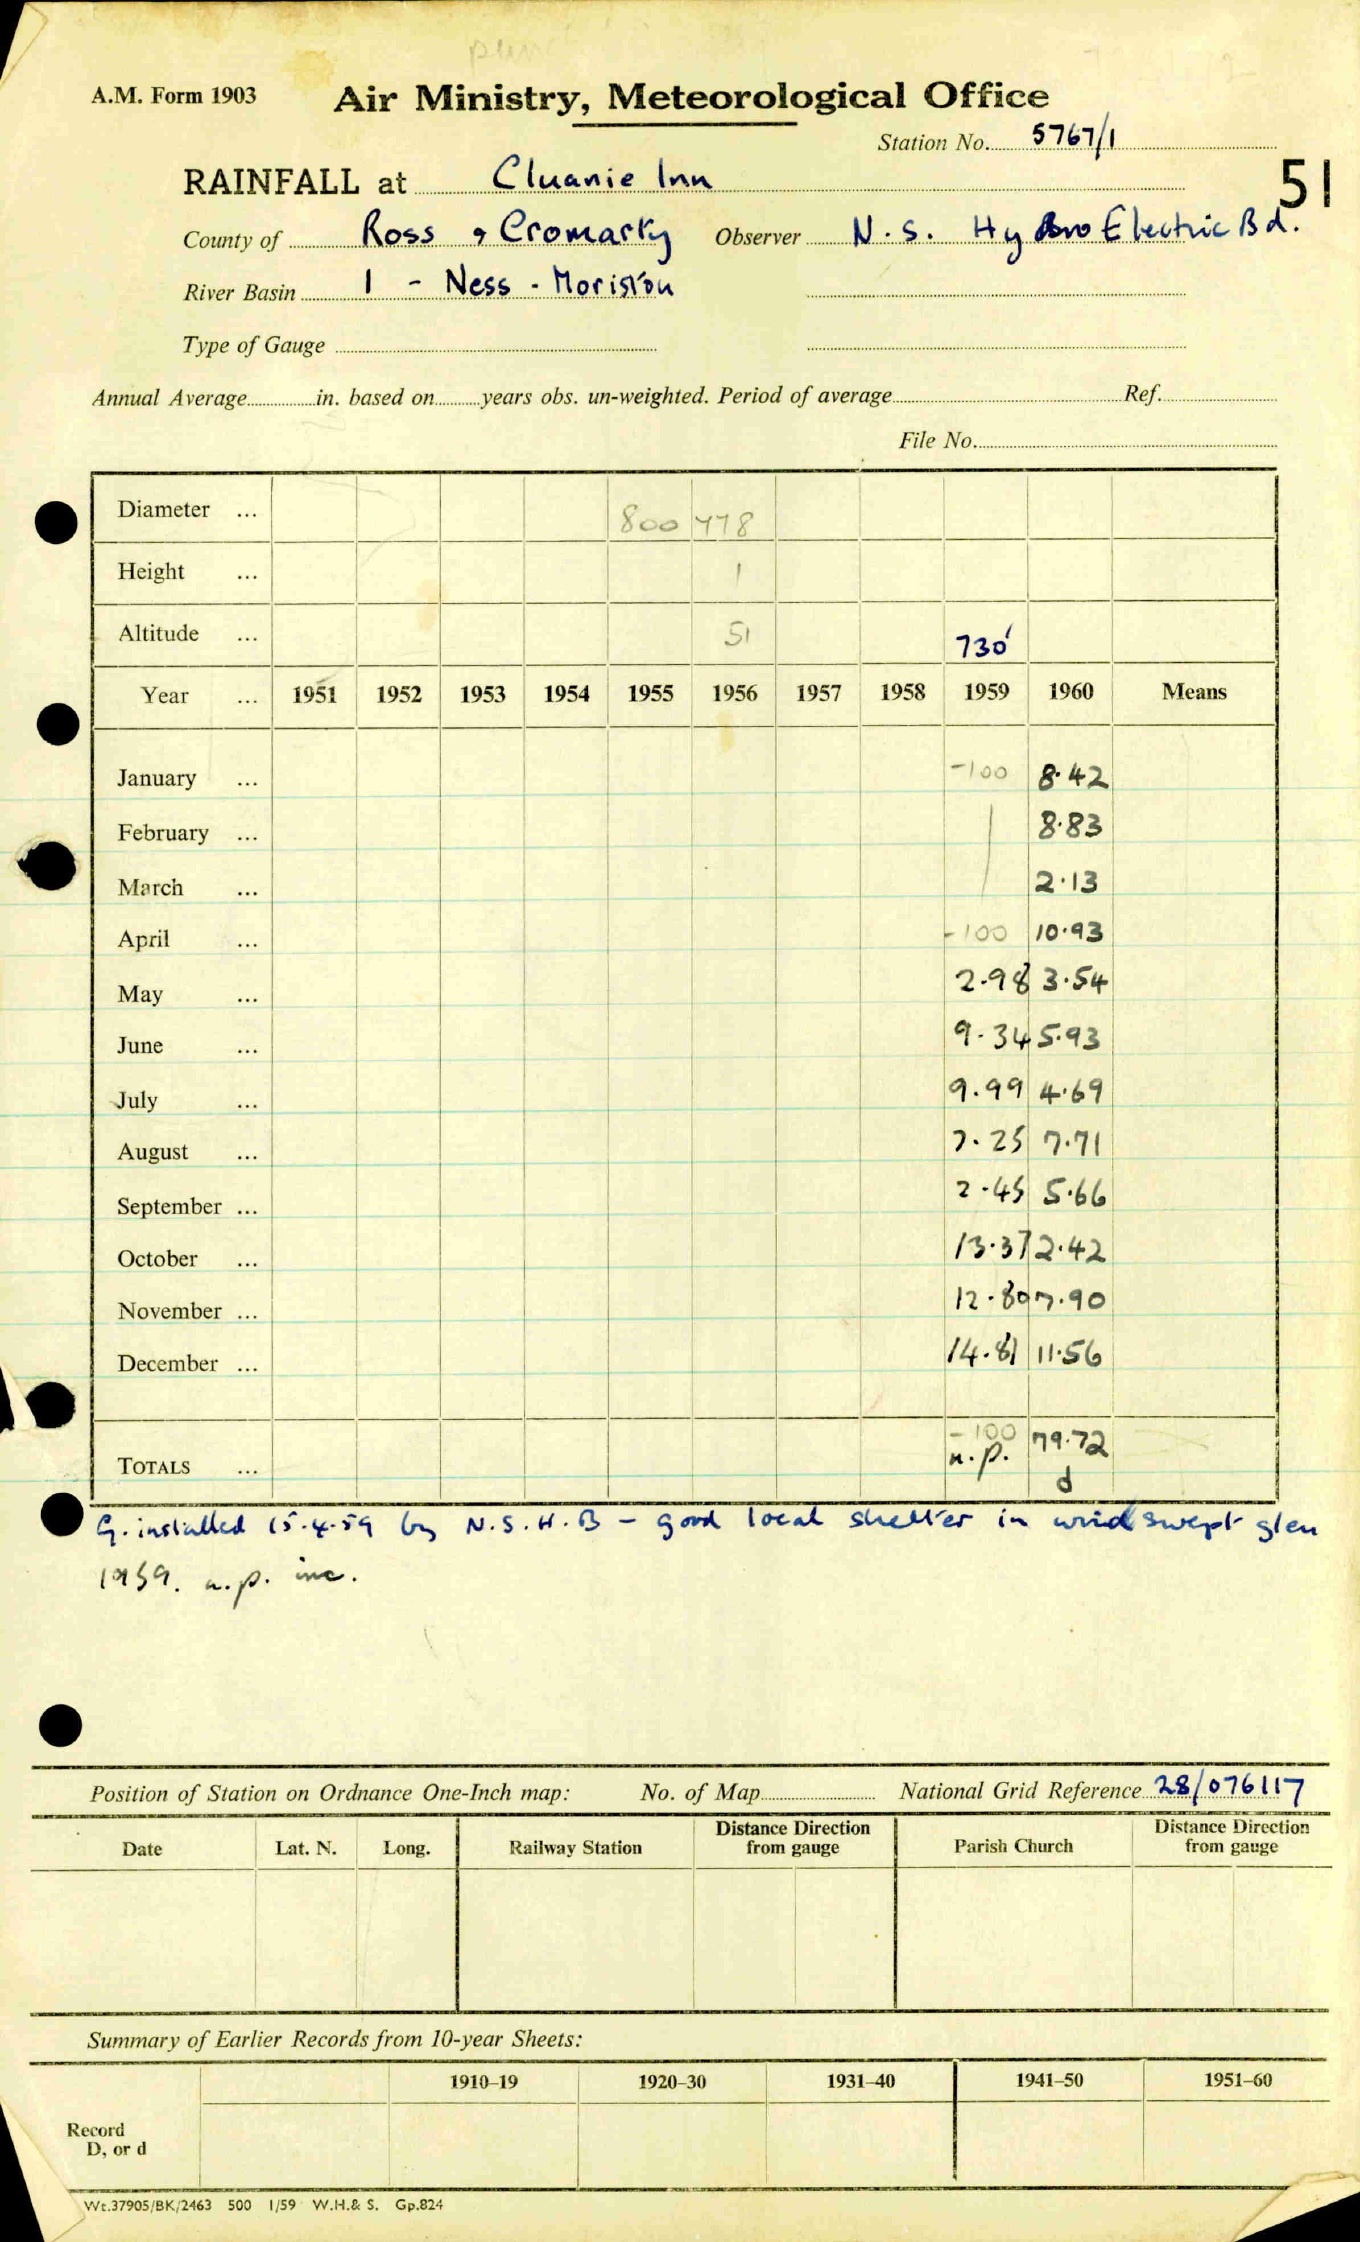 A.M. Form 1903
Air Ministry, Meteorological Office
Station No. 5767/1
51
RAINFALL at Cluanie Inn
County of Ross & Cromarty Observer N.S. Hydro Electric Bd.
River Basin 1 - Ness - Moriston
Type of Gauge
Annual Average in. based on years obs. un-weighted. Period of average Ref.
File No.
Diameter ... 800 778
Height ... 1
Altitude ... 51 730'
Year ... 1951 1952 1953 1954 1955 1956 1957 1958 1959 1960 Means
January ... -100 8.42
February ... 8.83
March ... 2.13
April ... -100 10.93
May ... 2.98 3.54
June ... 9.34 5.93
July ... 9.99 4.69
August ... 7.25 7.71
September ... 2.45 5.66
October ... 13.37 2.42
November ... 12.80 7.90
December ... 14.81 11.56
-100
TOTALS ... n.p. 79.72
d
G. installed 15.4.59 by N.S.H.B - good local shelter in windswept glen
1959. n.p. inc.
Position of Station on Ordnance One-Inch map: No. of Map National Grid Reference 28/076117
Date Lat. N. Long. Railway Station Distance Direction from gauge Parish Church Distance Direction from gauge
Summary of Earlier Records from 10-year Sheets:
1910–19 1920–30 1931–40 1941–50 1951–60
Record
D, or d
Wt.37905/BK/2463 500 1/59 W.H.& S. Gp.824